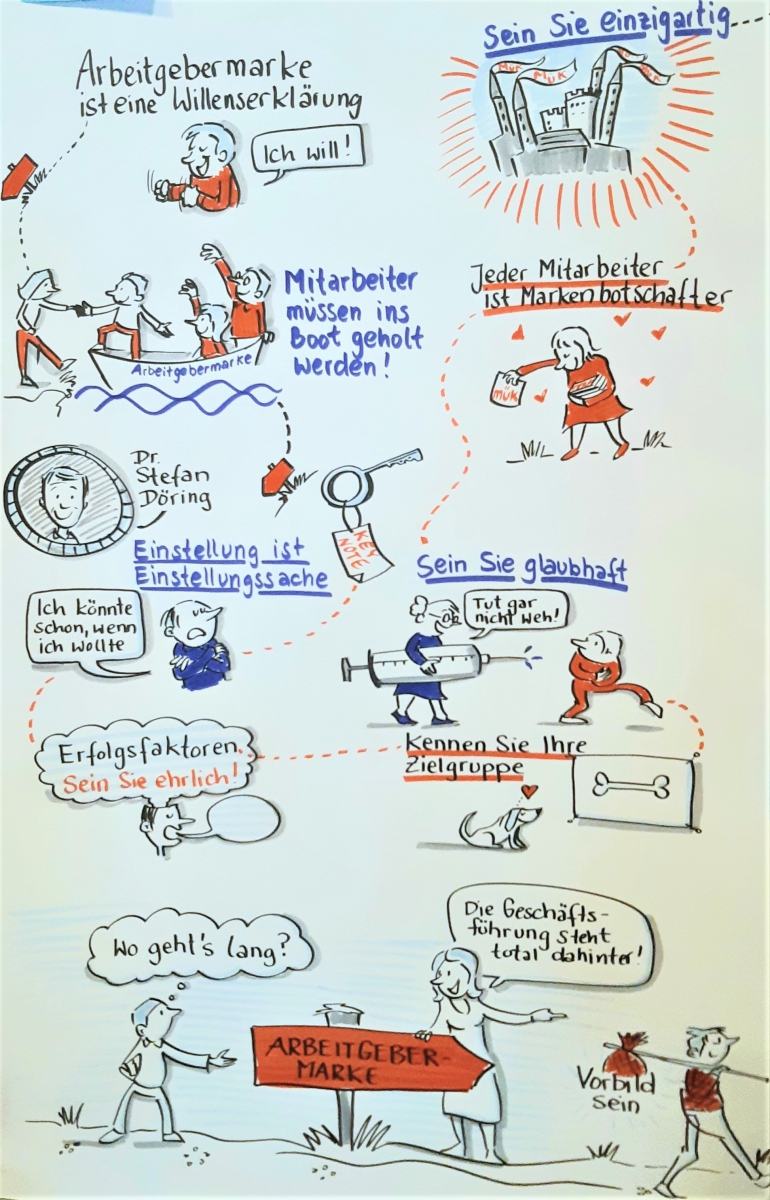 Sein Sie einzigartig
Arbeitgebermarke
ist eine Willenserklärung
Ich will!
MÜK
MÜK
MÜK
Jeder Mitarbeiter
ist Markenbotschafter
MÜK
Mitarbeiter
müssen ins
Boot geholt
werden!
Arbeitgebermarke
Dr.
Stefan
Döring
KEY
NOTE
Einstellung ist
Einstellungssache
Ich könnte
schon, wenn
ich wollte
Sein Sie glaubhaft
Tut gar
nicht weh!
Erfolgsfaktoren.
Sein Sie ehrlich!
Kennen Sie Ihre
Zielgruppe
Wo geht's lang?
Die Geschäfts-
führung steht
total dahinter!
ARBEITGEBER-
MARKE
Vorbild
sein